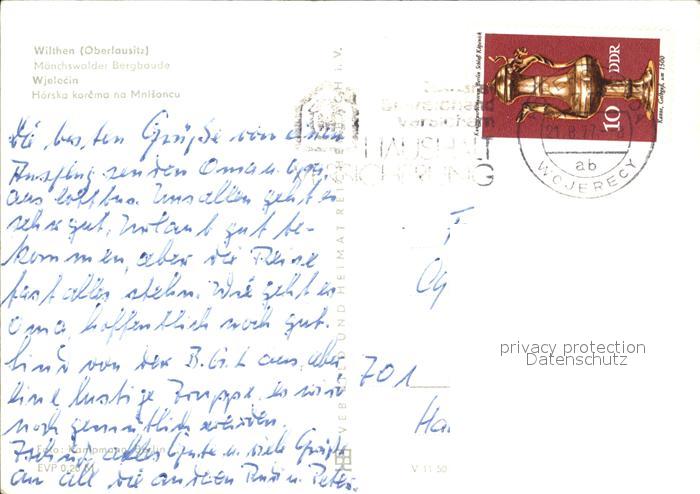 Wilthen (Oberlausitz)
Mönchswalder Bergbaude
Wjelećin
Hórska korčma na Mnišoncu
Die besten Grüße von einem
Ausflug senden Oma u. Opa
aus Cottbus. Uns allen geht es
sehr gut, Urlaub gut be-
kommen, aber die Reise
fast alles stehn. Wie geht es
Oma, hoffentlich noch gut.
Sind von der B.G.L aus, aber
eine lustige Truppe, es wird
noch gemütlich werden.
alles Gute u. viele Grüße
an all die anderen
Foto: Kampmann, Berlin
EVP 0,20 M
VEB BILD UND HEIMAT REICHENBACH I. V.
V 11 50
Kunstgewerbemuseum Berlin Schloß Köpenick
DDR
10
Kanne, Gelbguß, um 1500
21.8.77
ab
WOJERECY
701
privacy protection
Datenschutz